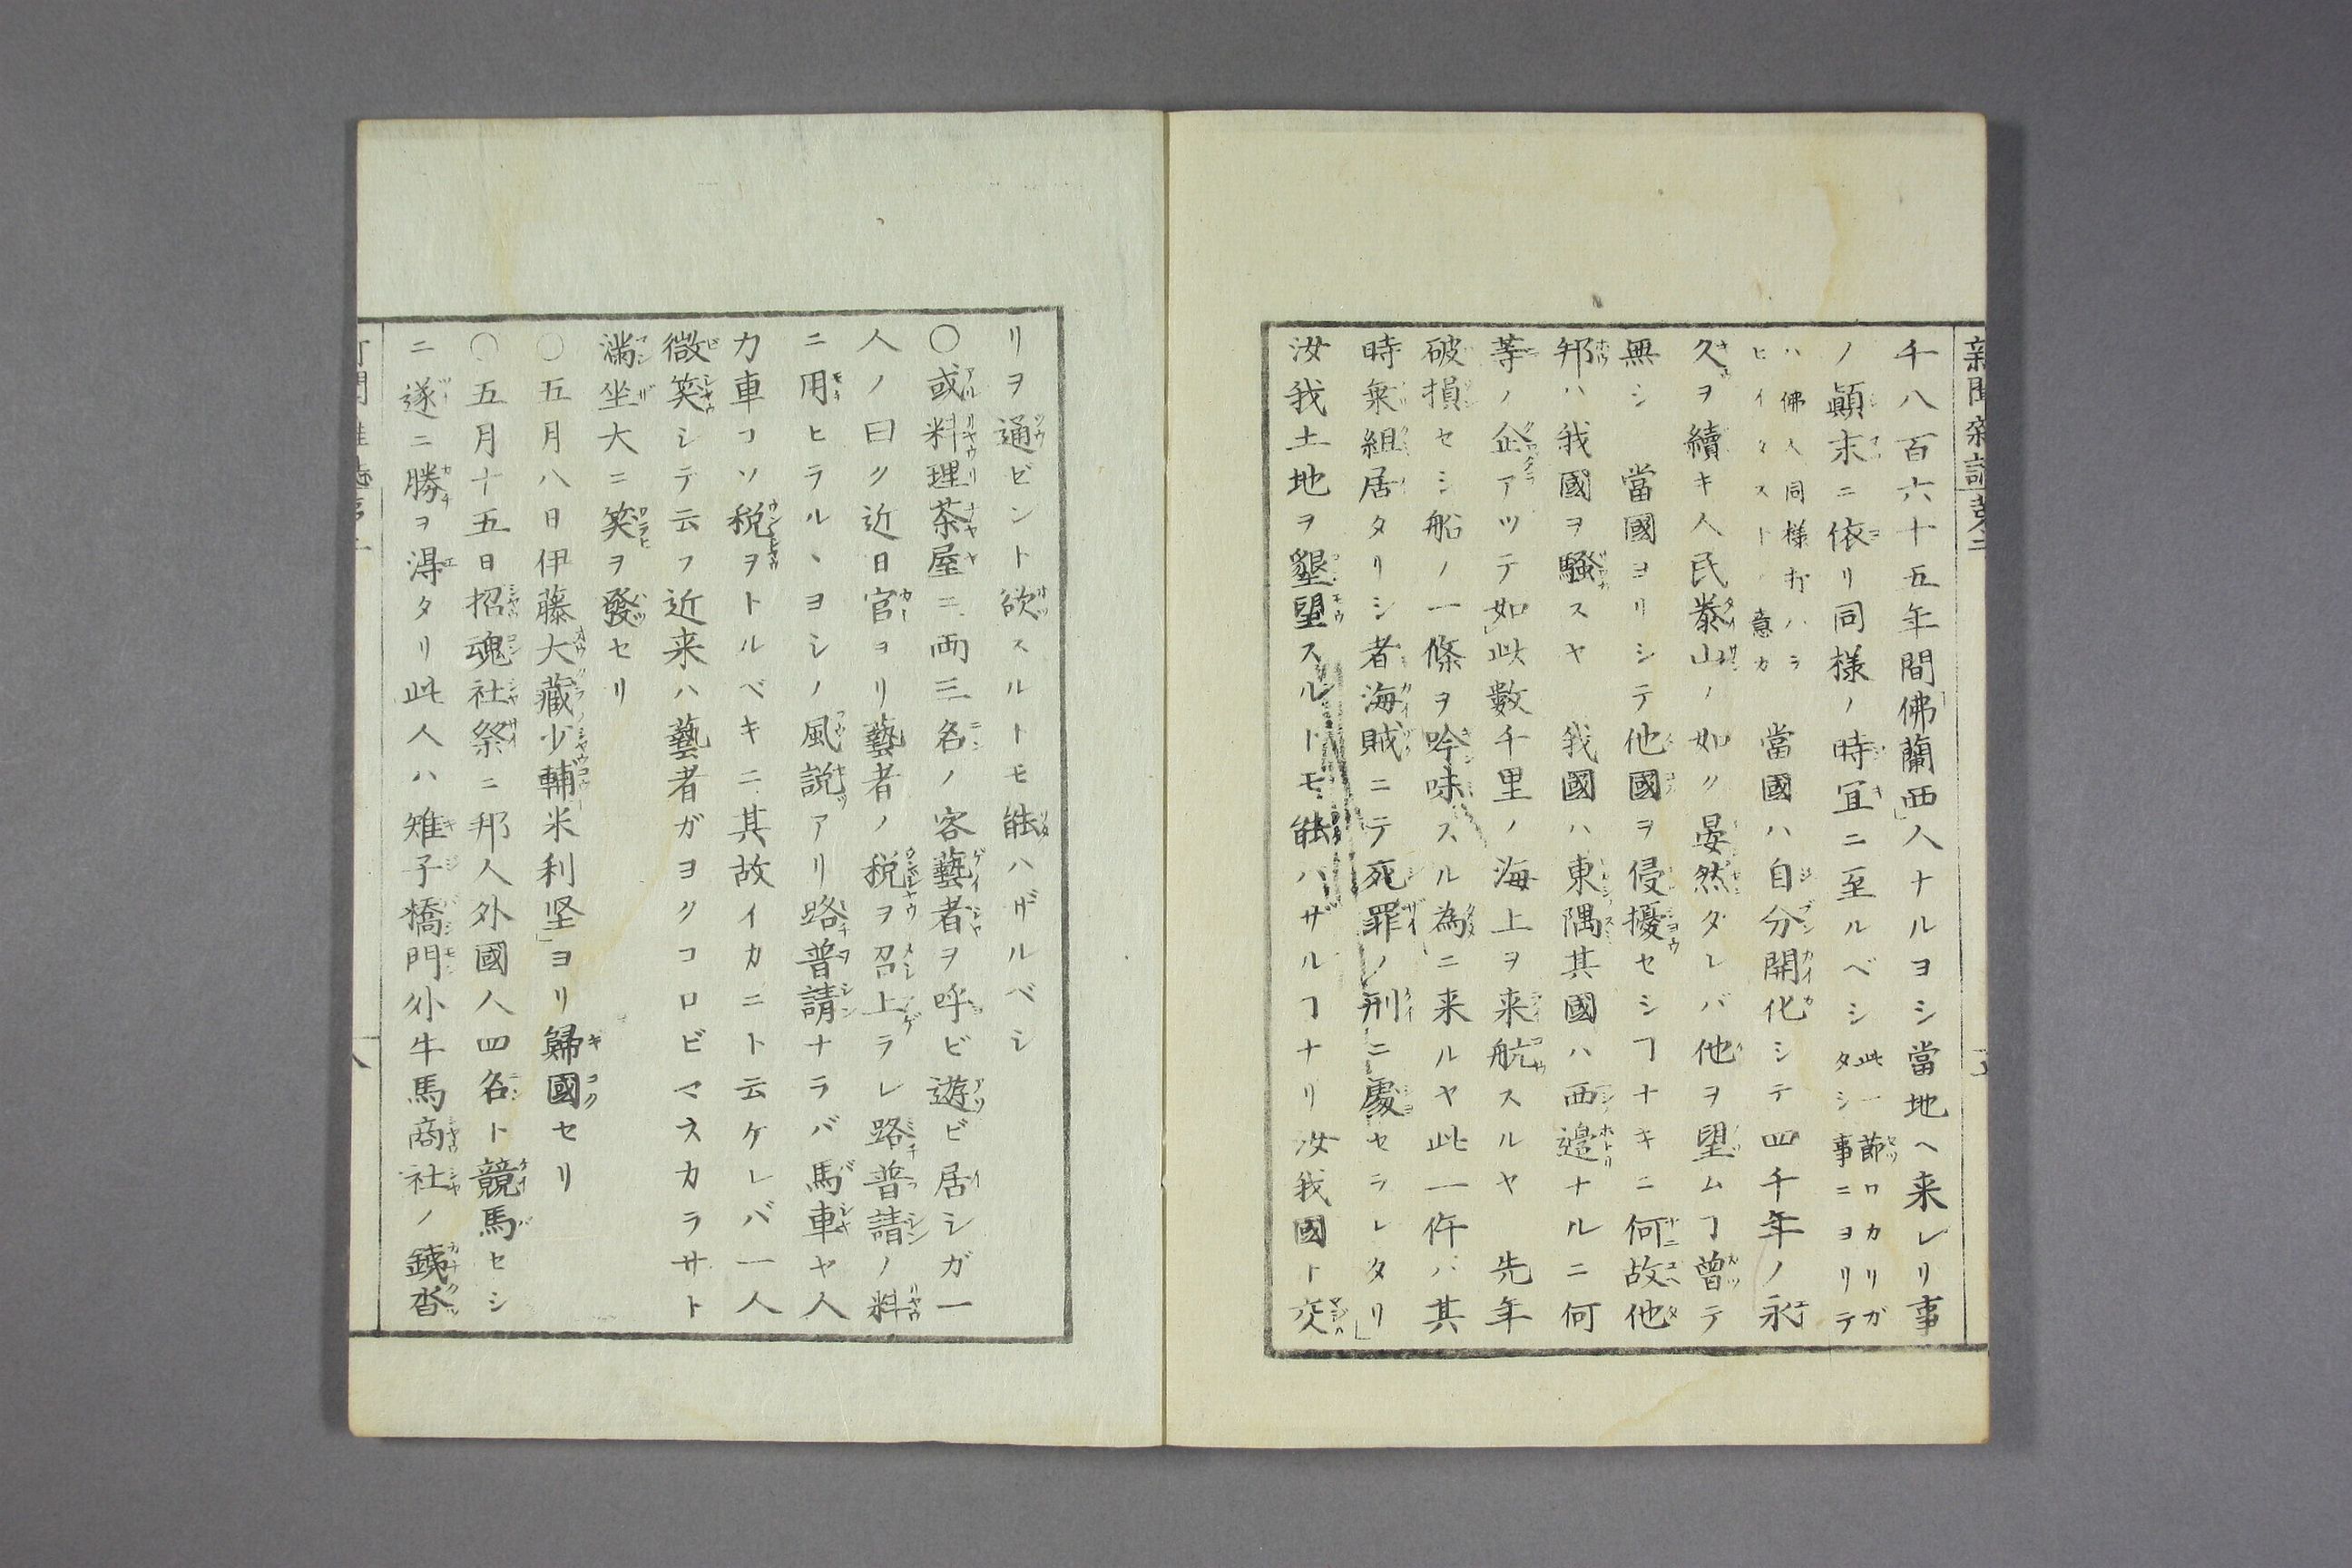 千八百六十五年間佛蘭西人ナルヨシ當地ヘ来レリ事
ノ顚末ニ依リ同様ノ時宜ニ至ルベシ此一節ワカリガタシ事ニヨリテ
ハ佛人同様打ハラヒイタスト意カ當國ハ自分開化シテ四千年ノ永
久ヲ續キ人民泰山ノ如ク晏然タレバ他ヲ望ムヿ曽テ
無シ當國ヨリシテ他國ヲ侵擾セシヿナキニ何故他
邦ハ我國ヲ騒スヤ我國ハ東隅其國ハ西邊ナルニ何
等ノ企アツテ如此數千里ノ海上ヲ来航スルヤ先年
破損セシ船ノ一條ヲ吟味スル為ニ来ルヤ此一件ハ其
時乗組居タリシ者海賊ニテ死罪ノ刑ニ處セラレタリ
汝我土地ヲ墾望スルトモ能ハザルヿナリ汝我國ト交
リヲ通ビント欲スルトモ能ハザルベシ
〇或料理茶屋ニ両三名ノ客藝者ヲ呼ビ遊ビ居シガ一
人ノ曰ク近日官ヨリ藝者ノ税ヲ召上ラレ路普請ノ料
ニ用ヒラルヽヨシノ風説アリ路普請ナラバ馬車ヤ人
力車コソ税ヲトルベキニ其故イカニト云ケレバ一人
微笑シテ云フ近来ハ藝者ガヨクコロビマスカラサト
滿坐大ニ笑ヲ發セリ
〇五月八日伊藤大藏少輔米利堅ヨリ歸國セリ
〇五月十五日招魂社祭ニ邦人外國人四名ト競馬セシ
ニ遂ニ勝ヲ得タリ此人ハ雉子橋門外牛馬商社ノ銕沓